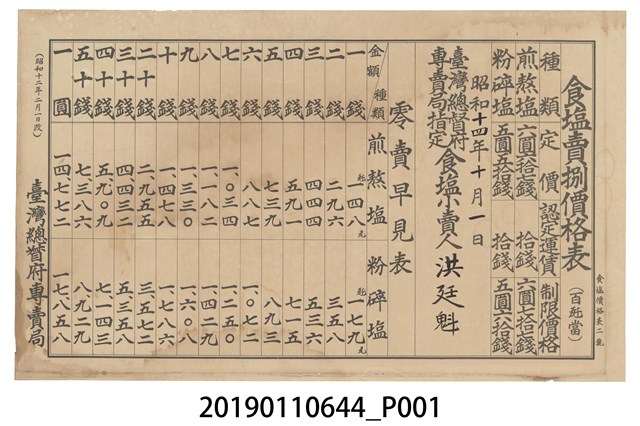 食塩價格表二號
食塩賣捌價格表(百瓩當)
種類 定價 認定運賃 制限價格
煎熬塩 拾錢
粉碎塩 拾錢 五圓六拾錢
昭和十四年十月一日
臺灣總督府
專賣局指定
食塩小賣人 洪廷魁
零賣早見表
金額 種類 煎熬塩 粉碎塩
一錢 一四八 一七九
二錢 二九六 三五八
三錢 四四四 五三六
四錢 五九一 七一五
五錢 七三九 八九三
六錢 八八七 一、〇七二
七錢 一、〇三四 一、二五〇
八錢 一、一八二 一、四二九
九錢 一、三三〇 一、六〇七
十錢 一、四七八 一、七八六
二十錢 二、九五五 三、五七二
三十錢 四、四三二 五、三五八
四十錢 五、九〇九 七、一四三
五十錢 七、三八六 八、九二九
一圓 一四、七七二 一七、八五八
臺灣總督府專賣局
(昭和十二年二月一日改)
20190110644_P001